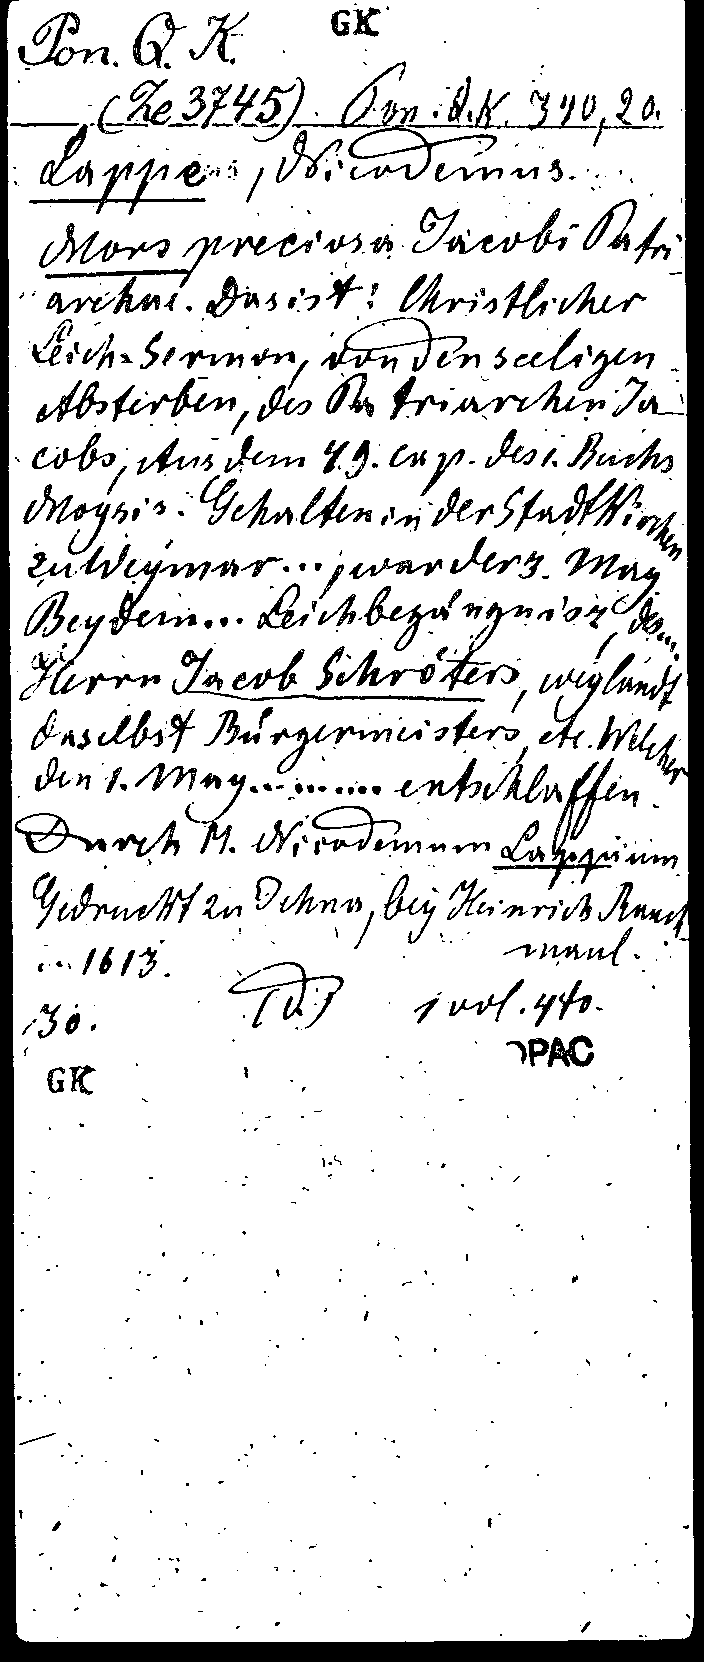 GK
Pon. Q. K.
(Ze 3745). Pon. Q. K. 340, 20.
Lappe, Nicodemus.
Mors preciosa Jacobi Patri
archae. Das ist: Christlicher
Leich-Sermon, von den seeligen
Absterben, des Patriarchen Ja
cobs, Aus dem 49. cap. des 1. Buchs
Moysis. Gehalten in der StadtKirchen
zu Weymar..., war der 3. May
Bey dem... Leichbegängnisz, des...
Herrn Jacob Schröters, weylandt
daselbst Bürgermeisters, etc. Welcher
den 1. May.......... entschlaffen.
Durch M. Nicodemum Lappium
Gedruckt zu Jehna, bey Heinrich Rauch
maul.
1613.
30. (d.) 1 vol. 4to.
OPAC
GK